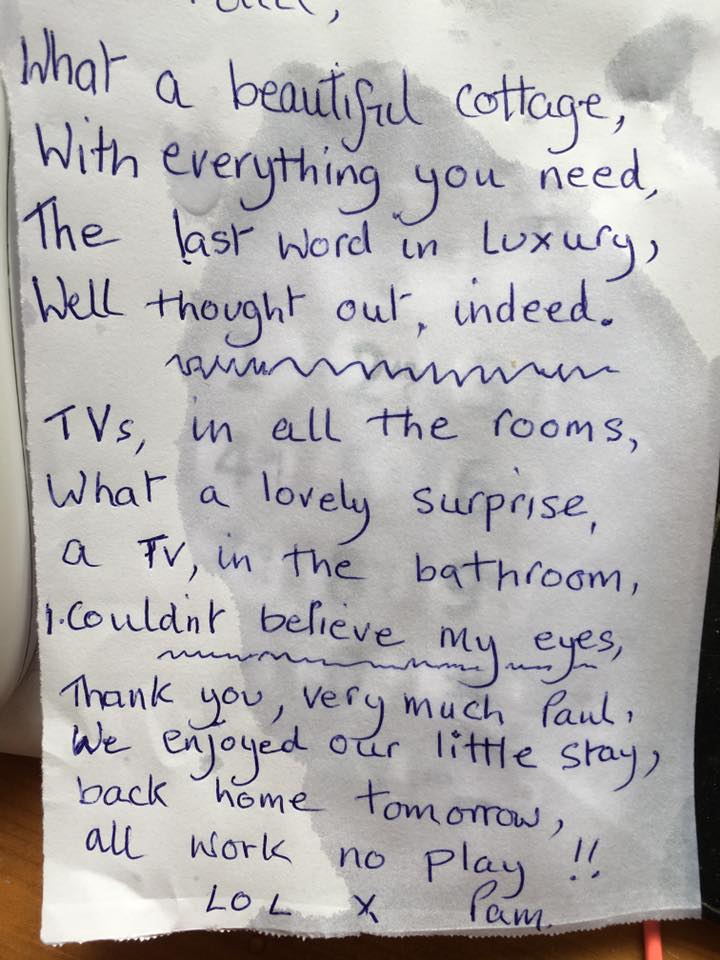 What a beautiful cottage,
With everything you need,
The last word in Luxury,
Well thought out, indeed.
TVs, in all the rooms,
What a lovely surprise,
a TV, in the bathroom,
I.couldnt believe my eyes,
Thank you, very much Paul,
We enjoyed our little stay,
back home tomorrow,
all work no play !!
LOL X Pam